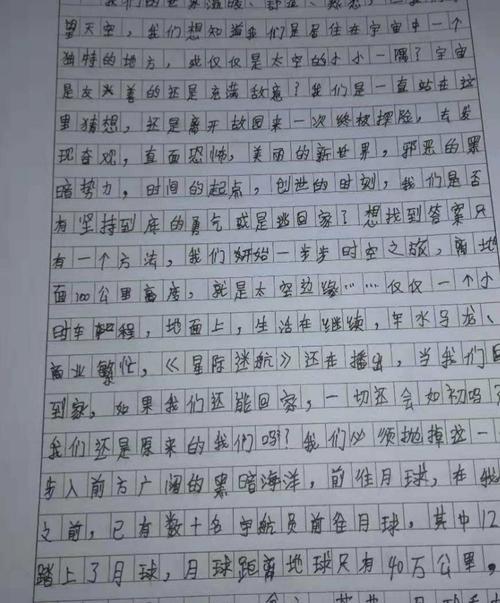 我们的世界温暖、舒适、
望天空，我们想知道我们是居住在宇宙中一个
独特的地方，或仅仅是太空的小小一隅？宇宙
是友善的还是充满敌意？我们是一直站在这
里猜想，还是离开故园来一次终极探险，去发
现奇观，直面恐怖，美丽的新世界，邪恶的黑
暗势力，时间的起点，创世的时刻，我们是否
有坚持到底的勇气或是逃回家？想找到答案只
有一个方法，我们要开始一步步时空之旅，离地
面100公里高度，就是太空边缘……仅仅一个小
时车程，地面上，生活在继续，车水马龙、
商业繁忙，《星际迷航》还在播出，当我们回
到家，如果我们还能回家，一切还会如初吗？
我们还是原来的我们吗？我们必须抛掉这一
步入前方广阔的黑暗海洋，前往月球，在我
之前，已有数十名宇航员前往月球，其中12
踏上了月球，月球距离地球只有40万公里，